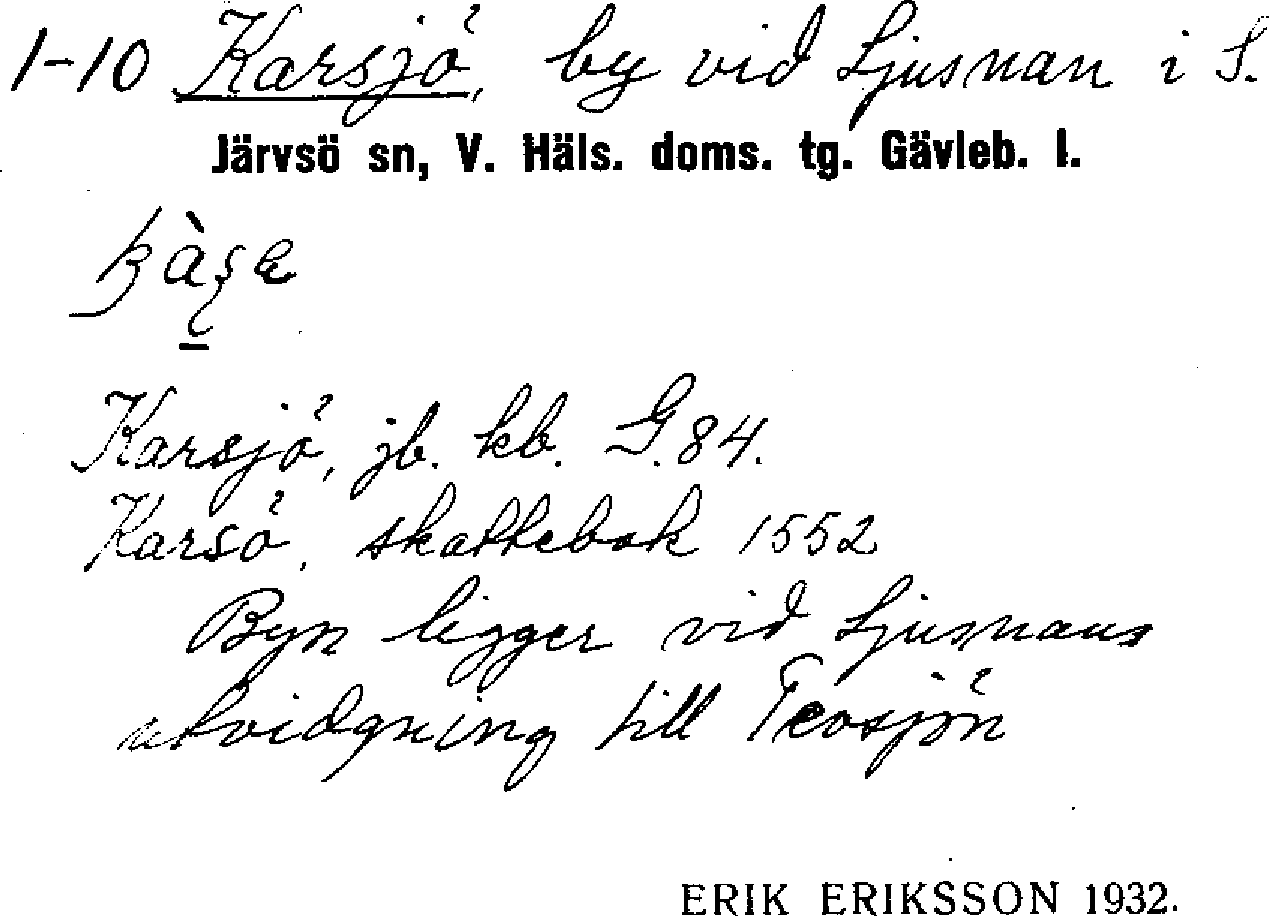 1-10 Karsjö, by vid Ljusnan i S.
Järvsö sn, V. Häls. doms. tg. Gävleb. l.
Karsjö, jb. kb. G.84.
Karsö, skattebok 1552
Byn ligger vid Ljusnans
utvidgning till Teosjön
ERIK ERIKSSON 1932.